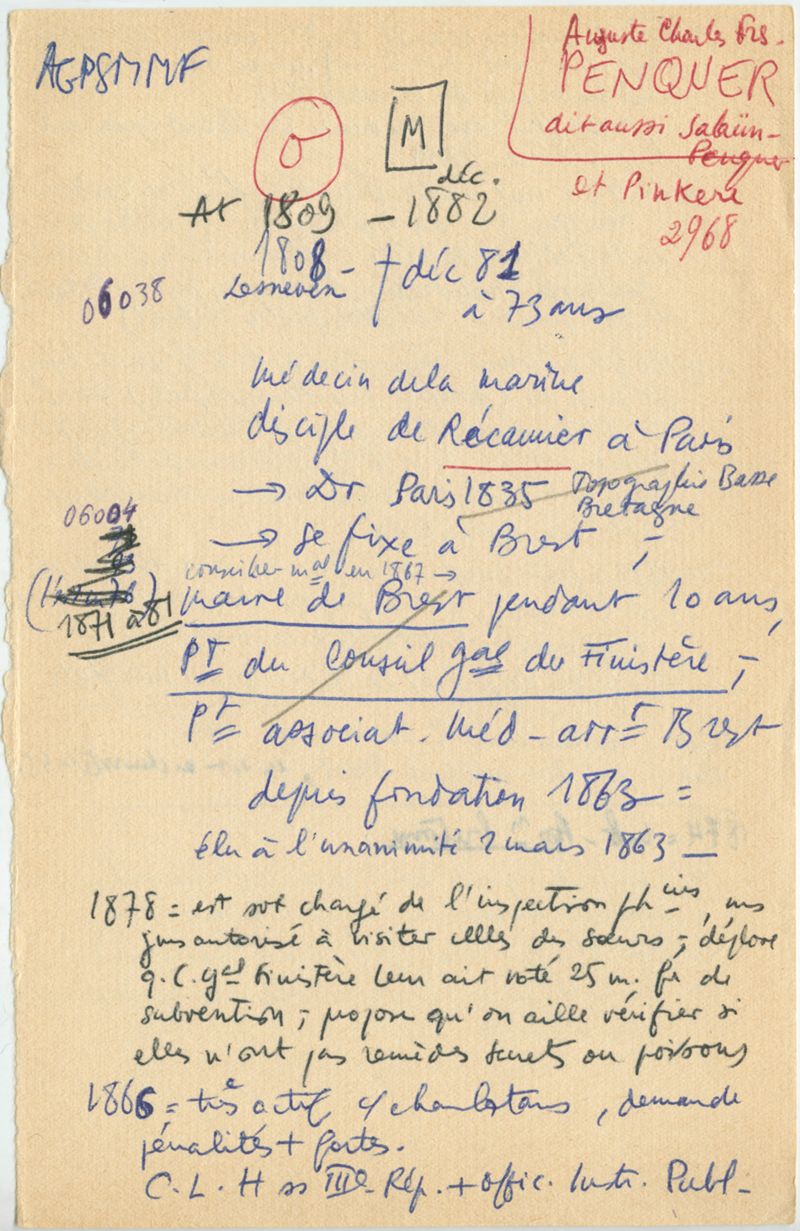 AGPSMMF
Auguste Charles Frs.
PENQUER
dit aussi Salaün-
Penquer
et Pinkere
2968
O
M
déc.
At 1809 – 1882
1808 – † déc 81
Lesneven
à 73 ans
06038
Médecin de la marine
disciple de Récamier à Paris
→ Dr Paris 1835 Topographie Basse
Bretagne
06004
→ se fixe à Brest ;
conseiller mal en 1867 →
maire de Brest pendant 10 ans,
1871 à 81
Pt du Conseil gal du Finistère ;
Pt associat. Méd – arrt Brest
depuis fondation 1863 =
élu à l'unanimité 2 mars 1863 –
1878 = est svt chargé de l'inspection phies, ms
pas autorisé à visiter celles des sœurs ; déplore
q. C. gal Finistère leur ait voté 25 m. fr de
subvention ; propose qu'on aille vérifier si
elles n'ont pas remèdes secrets ou poisons
1866 = très actif c/ charlatans, demande
pénalités + fortes.
C. L. H ss IIIe Rép. + offic. Instr. Publ –